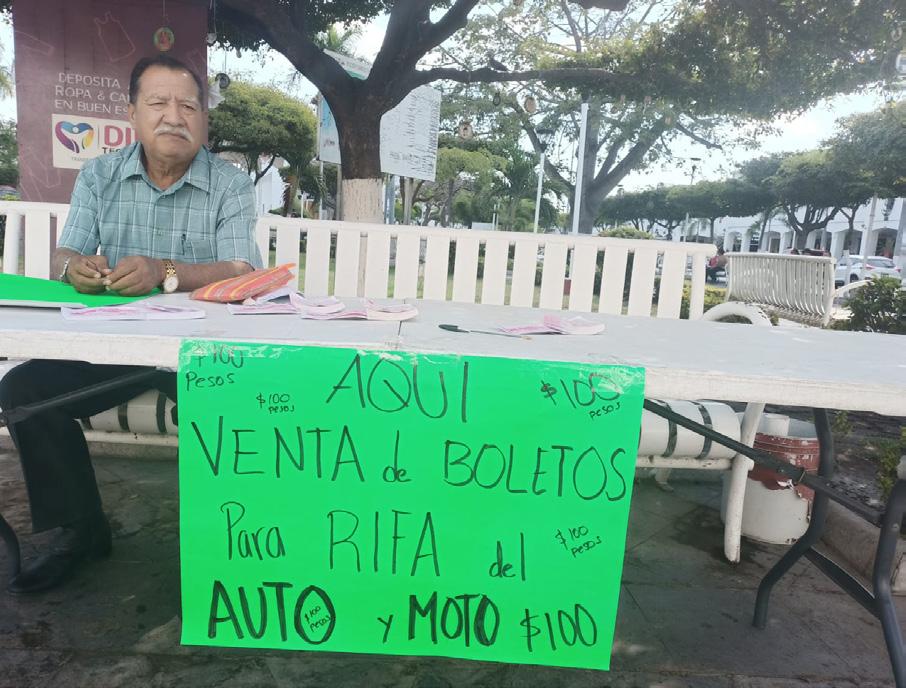 DEPOSITA
ROPA & CA
EN BUEN ES
DI
$100
Pesos
$100
pesos
AQUI
$100
pesos
VENTA de BOLETOS
Para RIFA del
$100
pesos
AUTO y MOTO $100
$100
pesos